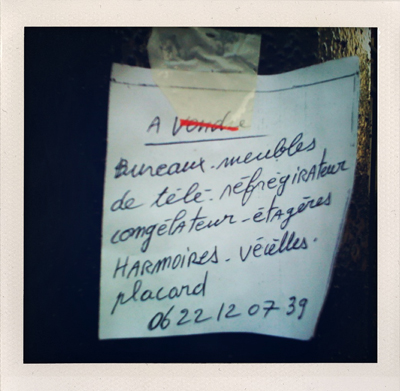 A Vendre
Bureaux-meubles
de télé-réfrégirateur
congélateur-étagères
HARMOIRES-véiélles.
placard
06 22 12 07 39